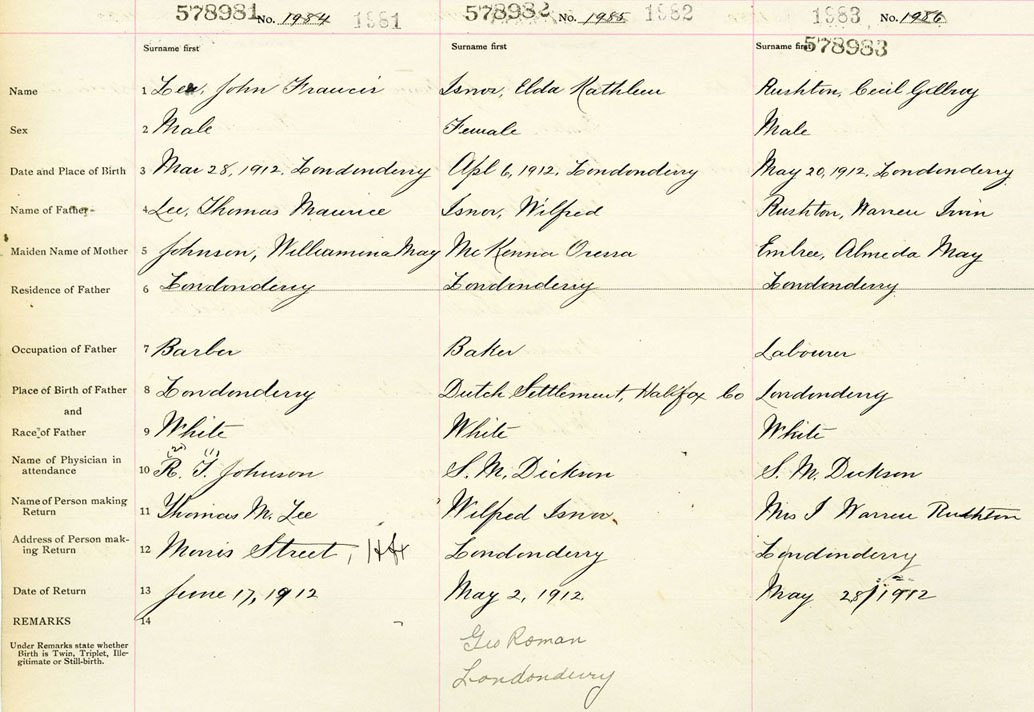 578981 No. 1984 1981 578982 No. 1985 1982 1983 No. 1986
Surname first Surname first Surname first 578983
Name 1 Lee, John Francis Isnor, Elda Kathleen Rushton, Cecil Gillroy
Sex 2 Male Female Male
Date and Place of Birth 3 Mar 28, 1912, Londonderry Apl 6, 1912, Londonderry May 20, 1912, Londonderry
Name of Father 4 Lee, Thomas Maurice Isnor, Wilfred Rushton, Warren Irvin
Maiden Name of Mother 5 Johnson, Williamina May McKenna Oressa Embree, Almeda May
Residence of Father 6 Londonderry Londonderry Londonderry
Occupation of Father 7 Barber Baker Labourer
Place of Birth of Father 8 Londonderry Dutch Settlement, Halifax Co Londonderry
and
Race of Father 9 White White White
(2) (1)
Name of Physician in
attendance 10 R. T. Johnson S. M. Dickson S. M. Dickson
Name of Person making
Return 11 Thomas M. Lee Wilfred Isnor Mrs I Warren Rushton
Address of Person mak-
ing Return 12 Morris Street, Hfx Londonderry Londonderry
Date of Return 13 June 17, 1912 May 2, 1912. May 28/1912
REMARKS 14
Under Remarks state whether
Birth is Twin, Triplet, Ille-
gitimate or Still-birth.
Geo Roman
Londonderry